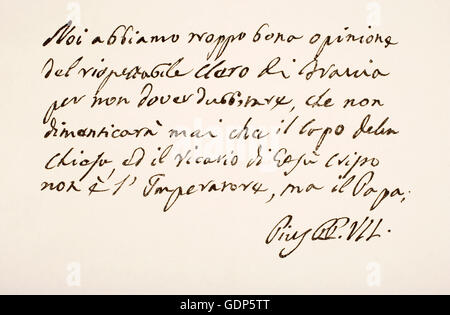 Noi abbiamo troppo bona opinione
del rispettabile Clero di Francia
per non dover dubbitare, che non
dimenticarà mai che il Capo della
Chiesa, ed il Vicario di Gesù Cristo
non è l' Imperatore, ma il Papa;
Pius PP. VII.
alamy stock photo
GDP5TT
www.alamy.com